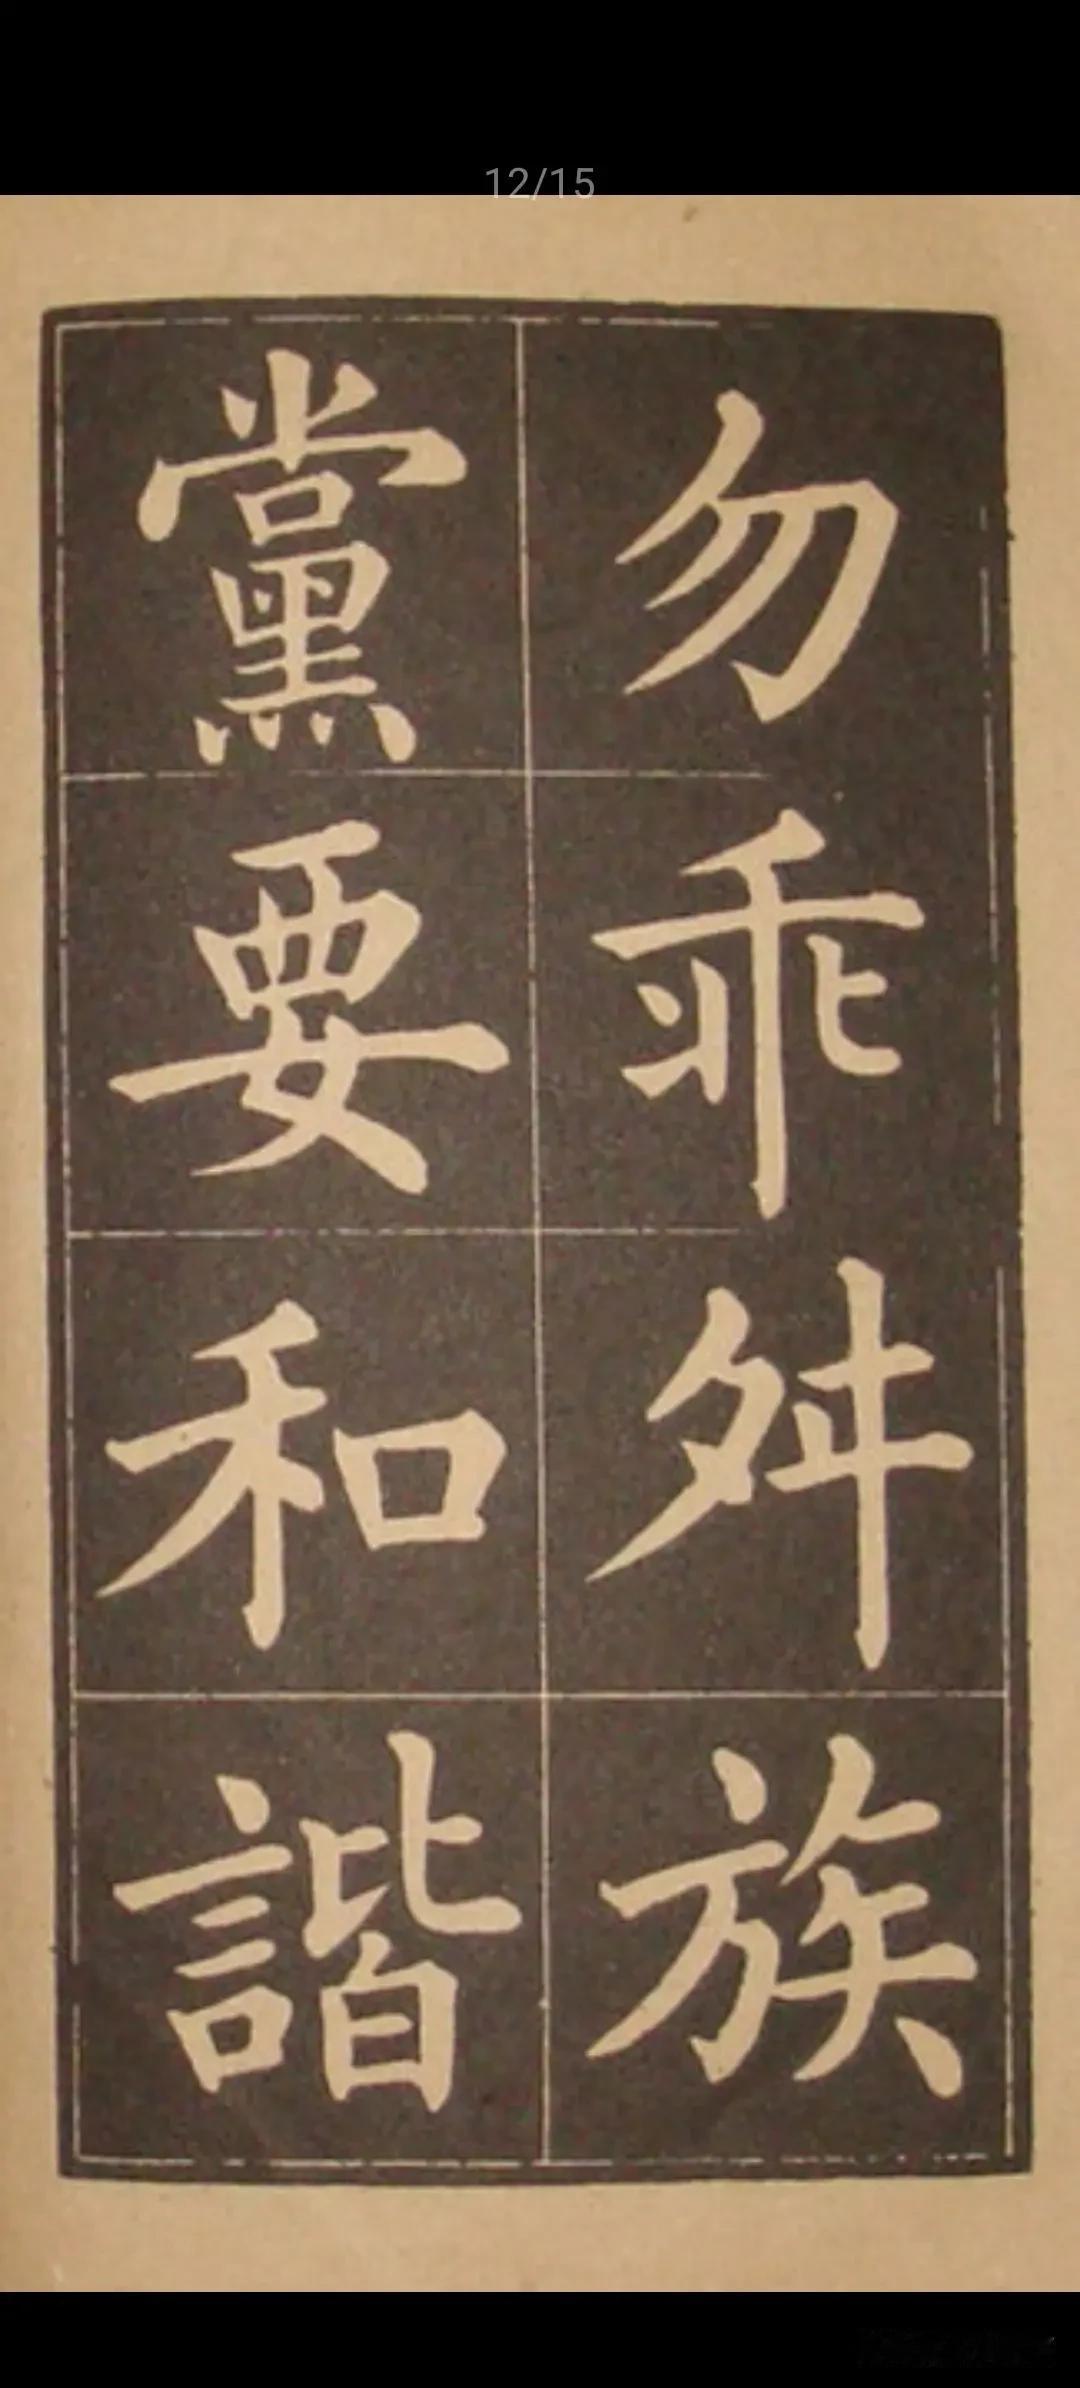 12/15
勿乖舛族
黨要和諧